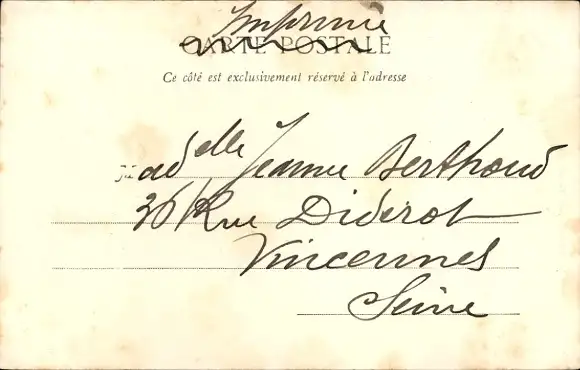 Imprimé
CARTE POSTALE
Ce côté est exclusivement réservé à l'adresse
Madelle Jeanne Berthoud
36 Rue Diderot
Vincennes
Seine